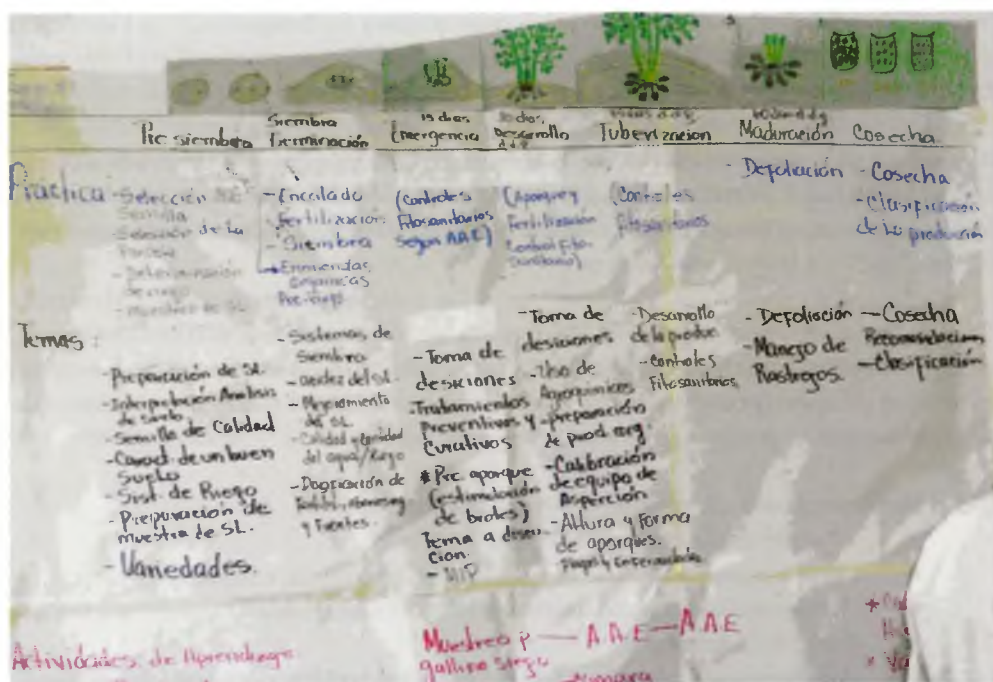 19 dias
30 dias
Pre siembra
Siembra
Germinación
Emergencia
Desarrollo
d d g
Tuberizacion
Maduración
Cosecha
Practica
- Selección
Semilla
- Selección de la
- Determinación
de riego
- muestreo de SL
- Encalado
- Fertilización
- Siembra
Enmiendas
Organicas
(Controles
Fitosanitarios
Segun AAE)
(Aporque y
Fertilización
Control Fito
Sanitario)
(Controles
Fitosanitarios
- Defoliación
- Cosecha
- Clasificación
de la producción
Temas :
- Preparación de SL.
- Interpretación Analisis
de suelo
- Semilla de Calidad
- Caract. de un buen
Suelo
- Sist. de Riego
- Preparación de
muestra de SL.
- Variedades.
- Sistemas de
Siembra
- acidez del SL
- Mejoramiento
del SL
- Calidad y cantidad
del agua/Riego
- Dosificación de
y Fuentes.
- Toma de
desiciones
- Tratamientos
Preventivos y
Curativos
* Pre aporque
(estimulación
de brotes)
Tema a discu-
cion.
- MIP
- Toma de
desiciones
- Uso de
Agroquimicos
- preparación
de prod. org.
- Calibración
de equipo de
Asperción
- Altura y Forma
de aporques.
- Desarrollo
de la produc
- Controles
Fitosanitarios
- Defoliación
- Manejo de
Rastrojos.
- Cosecha
Recomendaciones
- Clasificación
Actividades de Aprendizaje
Muestreo p
gallina siega
A.A.E - A.A.E